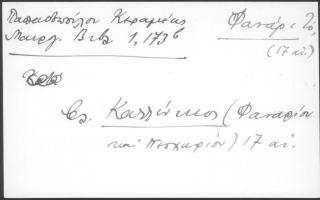 Παπαδοπούλου Κεραμέως
Μαυρ. Βιβλ 1, 173β
Φανάρι
(17 αἰ.)
βλ. Καλλίνικος (Φαναρίου
καὶ Νεοχωρίου) 17 αἰ.